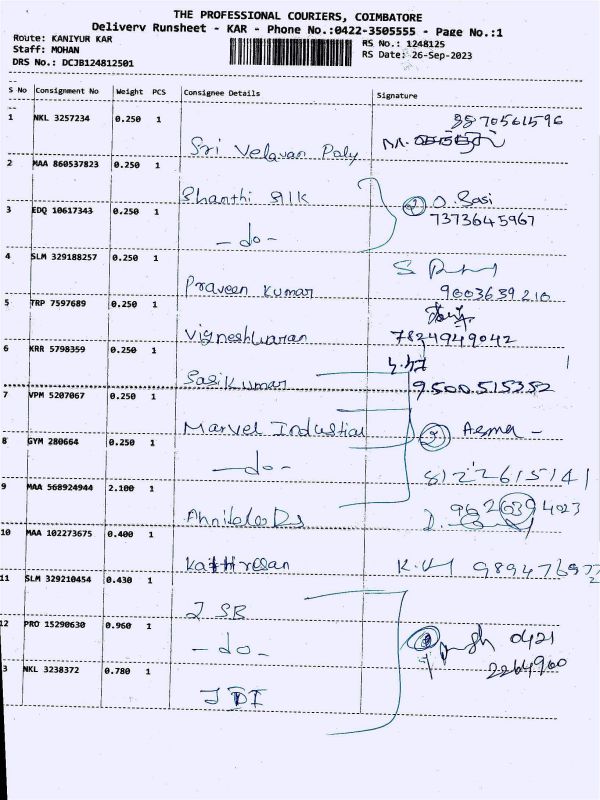 THE PROFESSIONAL COURIERS, COIMBATORE
Delivery Runsheet - KAR - Phone No.:0422-3505555 - Page No.:1
Route: KANIYUR KAR
RS No.: 1248125
Staff: MOHAN
RS Date: 26-Sep-2023
DRS No.: DCJB124812501
S No Consignment No Weight PCS Consignee Details Signature
1 NKL 3257234 0.250 1
Sri Velavan Paly
M.
2 MAA 860537823 0.250 1
Shanthi
2 O. Sasi
3 EDQ 10617343 0.250 1
7373645967
-do-
4 SLM 329188257 0.250 1
Praveen Kumar
9003639210
5 TRP 7597689 0.250 1
Vigneshwaran
7824949042
6 KRR 5798359 0.250 1
Sasikumar
9500515352
7 VPM 5207067 0.250 1
Marvel Industrial
8 GYM 280664 0.250 1
-do-
8122615141
9 MAA 568924944 2.100 1
9626394023
D.
10 MAA 102273675 0.400 1
Kathiresan
K.
11 SLM 329210454 0.430 1
JSR
12 PRO 15290630 0.960 1
-do-
0421
2264900
3 NKL 3238372 0.780 1
JDI